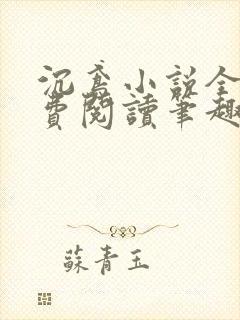 沉鸢小说全
費閱讀筆趣
蘇青玉